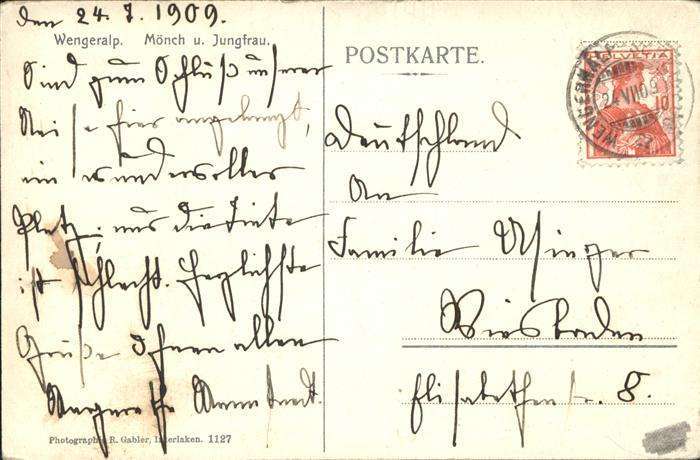 den 24. 7. 1909.
Wengeralp. Mönch u. Jungfrau.
Sind zum Schluß unserer
Reise hier angelangt,
ein wundervoller
Platz; nur die Tinte
ist schlecht. Herzlichste
Grüße Ihnen allen
Margarethe
Photographie R. Gabler, Interlaken. 1127
POSTKARTE.
HELVETIA
24.VII.09
10
Deutschland
An
Familie Usinger
Wiesbaden
Elisabethenstr. 8.